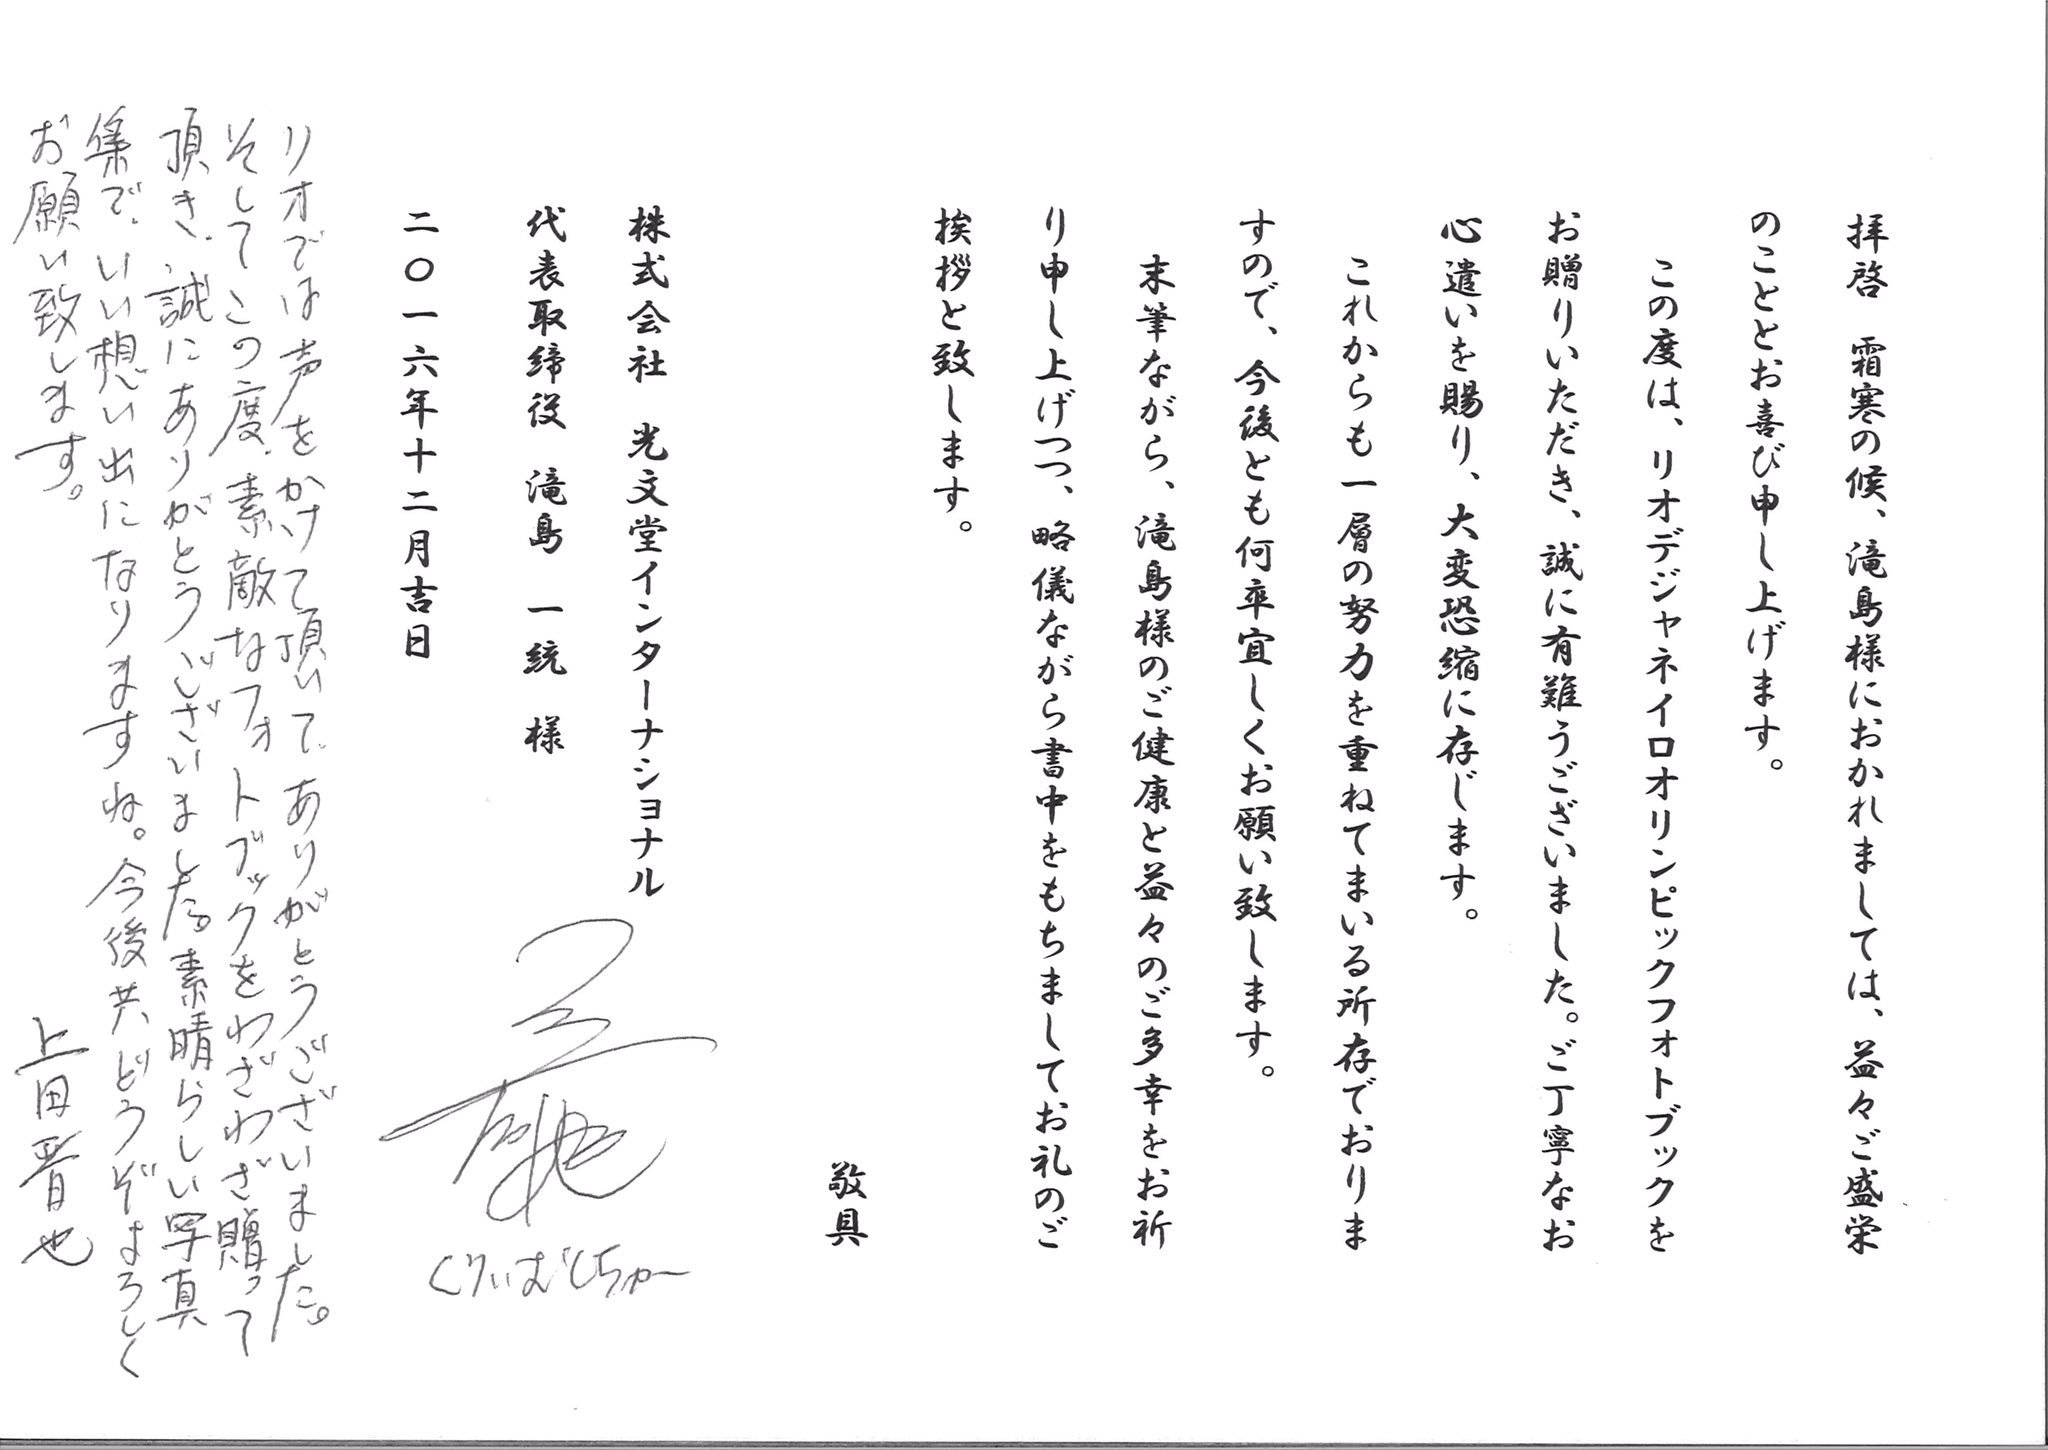 拝啓　霜寒の候、滝島様におかれましては、益々ご盛栄
のこととお喜び申し上げます。
この度は、リオデジャネイロオリンピックフォトブックを
お贈りいただき、誠に有難うございました。ご丁寧なお
心遣いを賜り、大変恐縮に存じます。
これからも一層の努力を重ねてまいる所存でおりま
すので、今後とも何卒宜しくお願い致します。
末筆ながら、滝島様のご健康と益々のご多幸をお祈
り申し上げつつ、略儀ながら書中をもちましてお礼のご
挨拶と致します。
敬具
株式会社　光文堂インターナショナル
代表取締役　滝島　一統　様
二〇一六年十二月吉日
くりぃむしちゅー
リオでは声をかけて頂いて、ありがとうございました。
そしてこの度、素敵なフォトブックをわざわざ贈って
頂き、誠にありがとうございました。素晴らしい写真
集で、いい想い出になりますね。今後共どうぞよろしく
お願い致します。
上田晋也